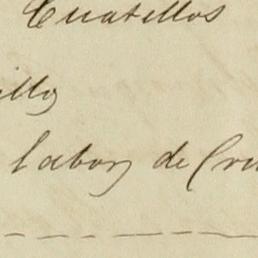 Cuatillos
illo
labor de Cru